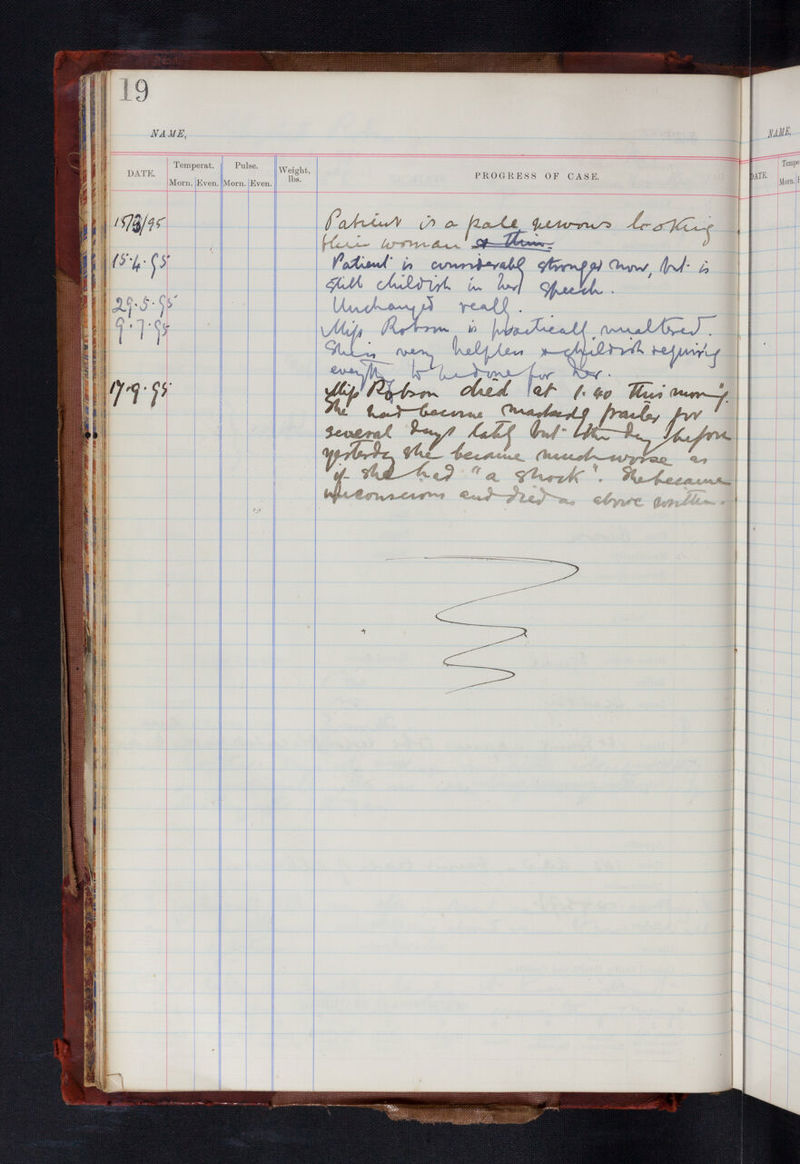 19
NAME,
DATE. Temperat. Pulse. Weight, lbs. PROGRESS OF CASE.
Morn. Even. Morn. Even.
15/3/95 Patient is a pale nervous looking
thin woman & thin.
15.4.95 Patient is considerably stronger now, but is
still childish in her speech.
29.5.95 Unchanged really.
9.7.95 Miss Robson is practically unaltered.
She is very helpless & childish requiring
everything to be done for her.
17.9.95 Miss Robson died at 1.40 this morning.
She had become markedly frailer for
several days lately but the day before
yesterday she became much worse as
if she had "a shock". She became
unconscious and died as above written.
NAME,
DATE. Tempe
Morn. E